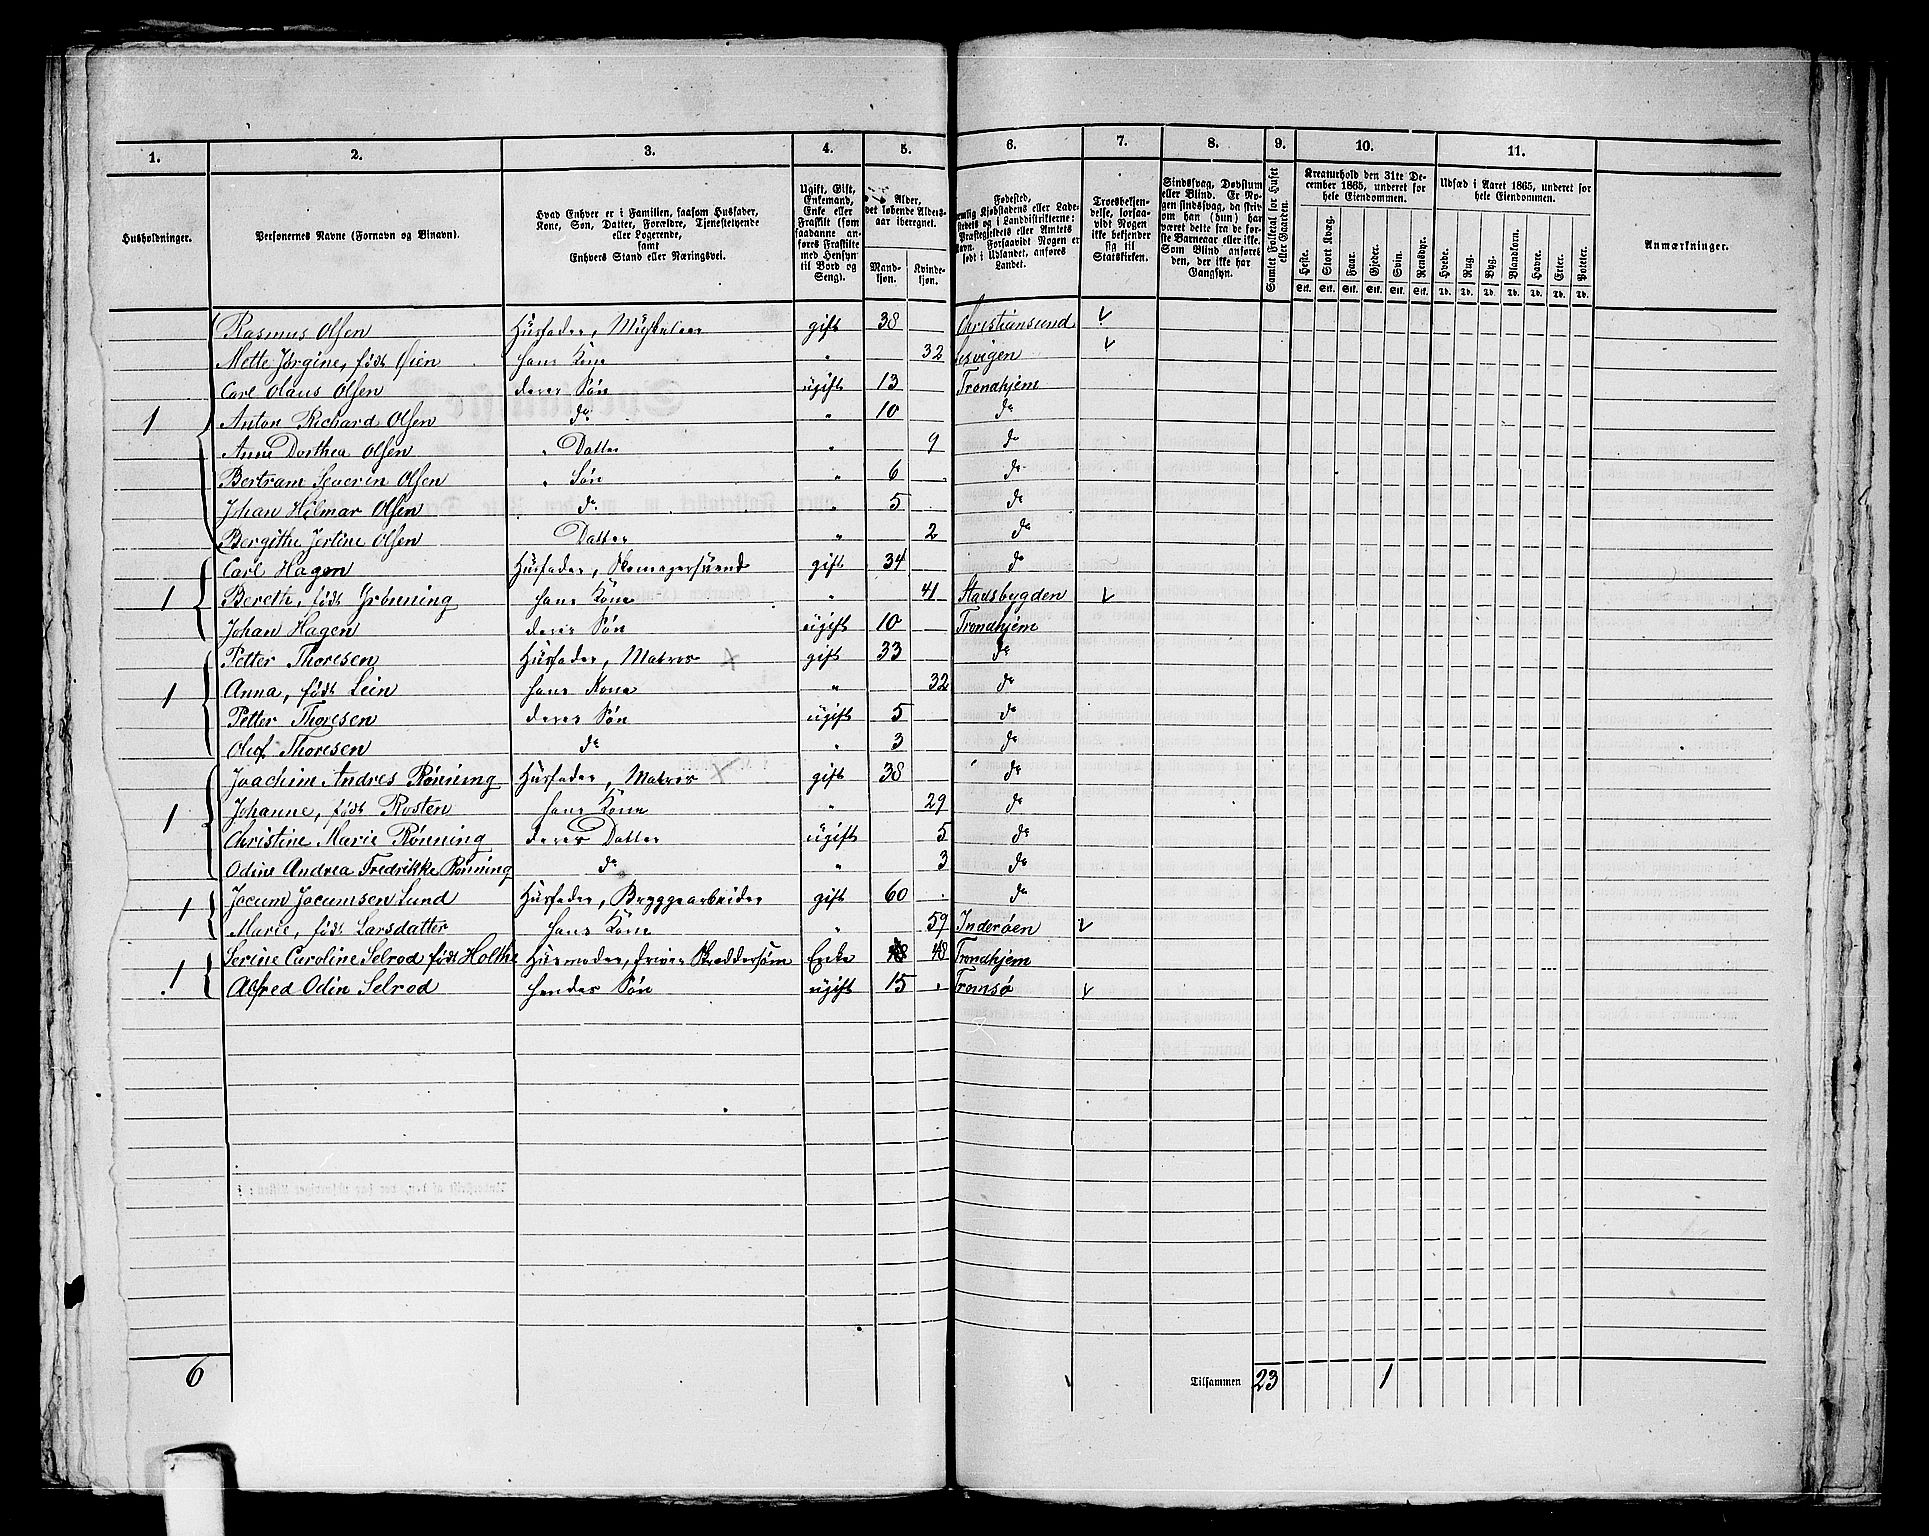 1. 2. 3. 4. 5. 6. 7. 8. 9. 10. 11.
Husholdninger.
Personernes Navne (Fornavn og Binavn).
Hvad Enhver er i Familien, saasom Husfader,
Kone, Søn, Datter, Forældre, Tjenestetyende
eller Logerende,
samt
Enhvers Stand eller Næringsvei.
Ugift, Gift,
Enkemand,
Enke eller
Fraskilt (som
saadanne an-
føres Fraskilte
med Hensyn
til Bord og
Seng).
Alder,
det løbende Alders-
aar iberegnet.
Mand-
kjøn.
Kvinde-
kjøn.
Fødested,
Landet.
Troesbekjen-
delse, forsaa-
vidt Nogen
ikke bekjender
sig til
Statskirken.
Sindssvag, Døvstum
eller Blind. Er No-
gen sindssvag, da skriv
om han (hun) har
været dette fra de før-
ste Barneaar eller ikke.
Som Blind anføres
den, der ikke har
Gangsyn.
Samlet Folketal for Huset
eller Gaarden.
Kreaturhold den 31te De-
cember 1865, underet for
hele Eiendommen.
Heste. Stort Kvæg. Faar. Gjeder. Svin. Rensdyr.
Stk. Stk. Stk. Stk. Stk. Stk.
Udsæd i Aaret 1865, underet for
hele Eiendommen.
Hvede. Rug. Byg. Blandkorn. Havre. Erter. Poteter.
Td. Td. Td. Td. Td. Td. Td.
Anmærkninger.
Rasmus Olsen Husfader, gift 38 Christiansund
Mette Jørgine, født Øien hans Kone " 32
Carl Olaus Olsen deres Søn ugift 13 Trondhjem
1 Anton Richard Olsen do " 10 do
Anne Dorthea Olsen " Datter " 9 do
Bertram Severin Olsen " Søn " 6 do
Johan Hilmar Olsen do " 5 do
Bergithe Olsen Datter " 2 do
Carl Hagen Husfader, Skomagersvend gift 34 do
1 Bereth, født Grønning hans Kone " 41 Stadsbygden
Johan Hagen deres Søn ugift 10 Trondhjem
Petter Thoresen Husfader, Matros gift 33 do
1 Anna, født Lein hans Kone " 32 do
Petter Thoresen deres Søn ugift 5 do
Oluf Thoresen do " 3 do
Joachim Andres Rønning Husfader, Matros gift 38 do
1 Johanne, født Rosten hans Kone " 29 do
Christine Marie Rønning deres Datter ugift 5 do
Odine Andrea Fredrikke Rønning do " 3 do
1 Jocum Jocumsen Lund Husfader, Bryggearbeider gift 60 do
Marie, født Larsdatter hans Kone " 59 Inderøen
1 Serine Caroline Selrod født Holthe Husmoder, driver Skreddersøm Enke 48 Trondhjem
Alfred Odin Selrod hendes Søn ugift 15 Tromsø
6 Tilsammen 23 1